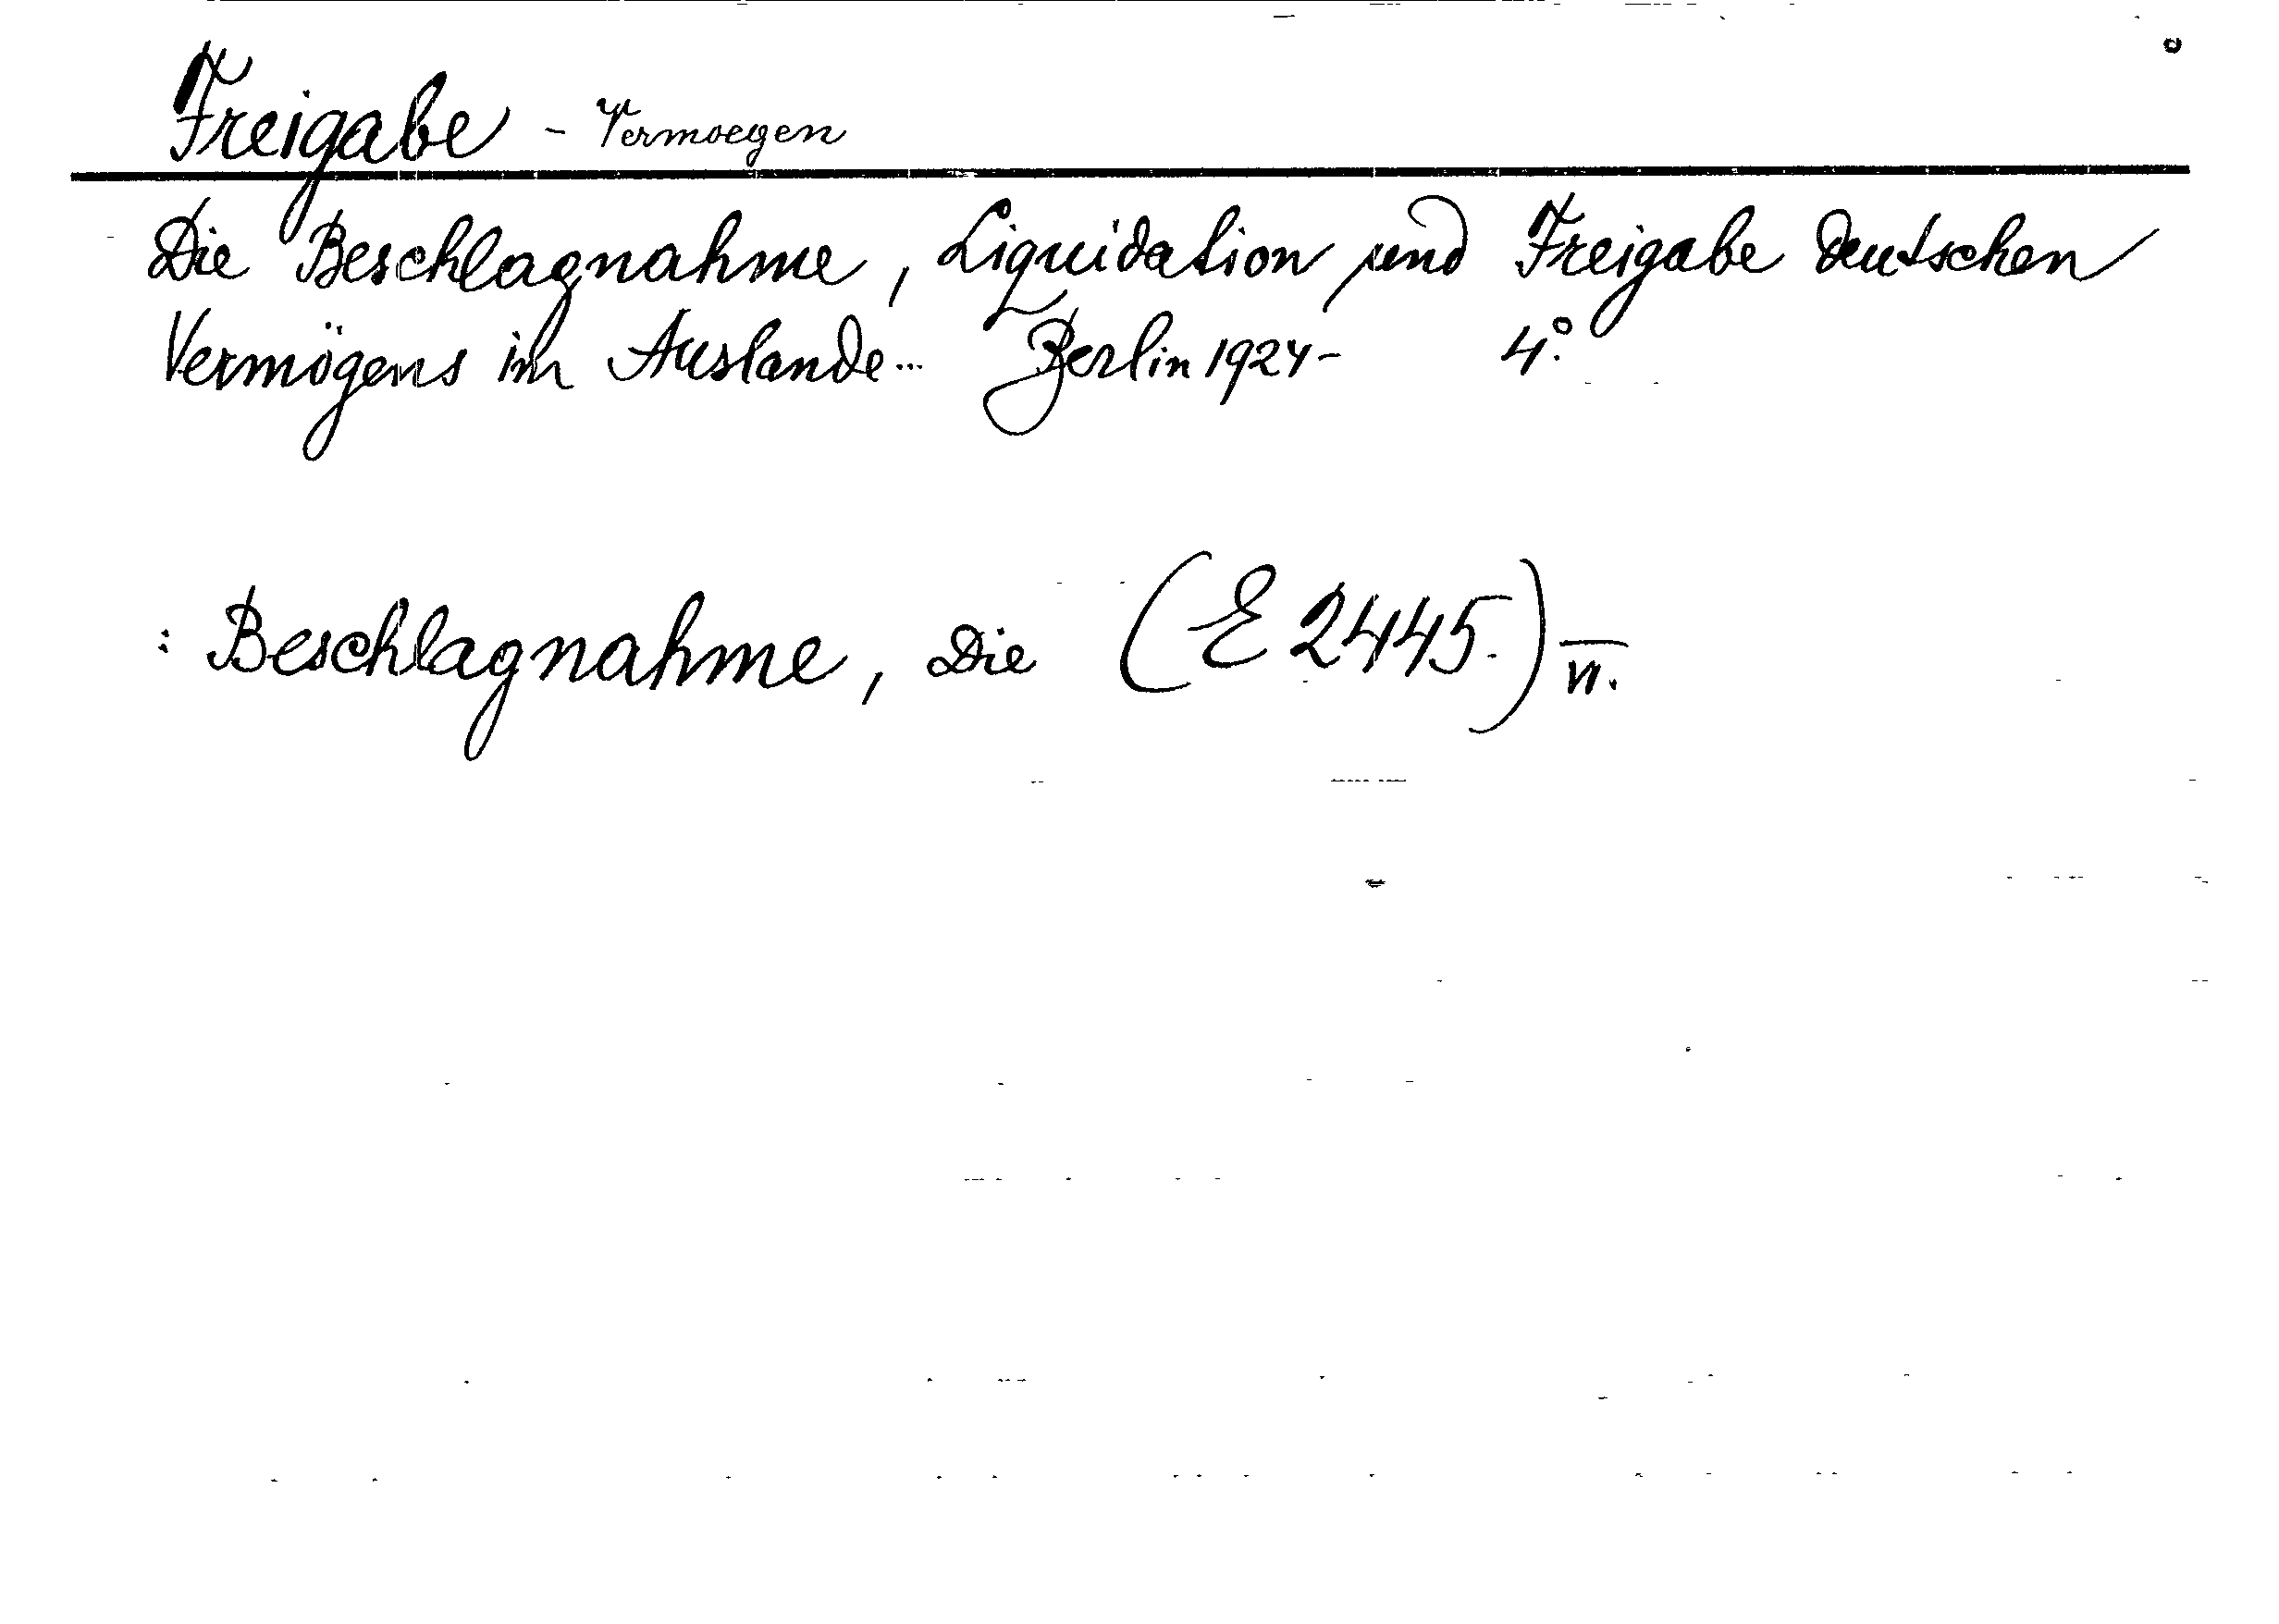 Freigabe - Vermoegen
Die Beschlagnahme, Liquidation und Freigabe deutschen
Vermögens im Auslande... Berlin 1924- 4°.
: Beschlagnahme, Die (E 2445.)